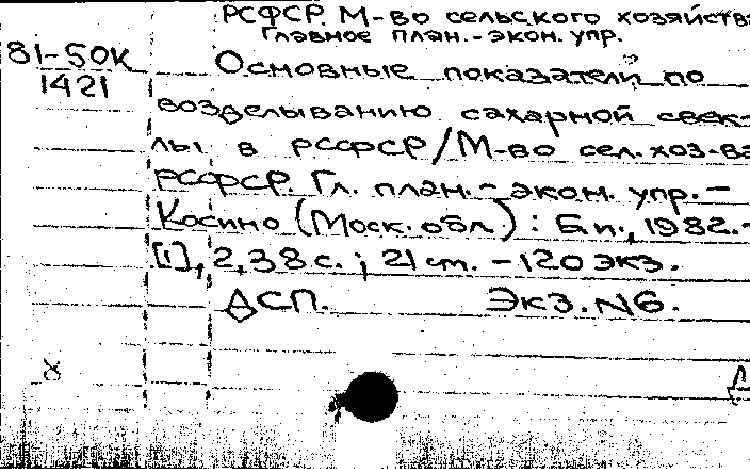 РСФСР. М-во сельского хозяйств
Главное план.-экон. упр.
81-50К
1421
Основные показатели по
возделыванию сахарной свек-
лы в РСФСР/М-во сел. хоз-ва
РСФСР. Гл. план.-экон. упр.-
Косино (Моск. обл.) : Б.и., 1982.-
[1], 2, 38 с. ; 21 см. - 120 экз.
ДСП. Экз. N6.
Х
Д